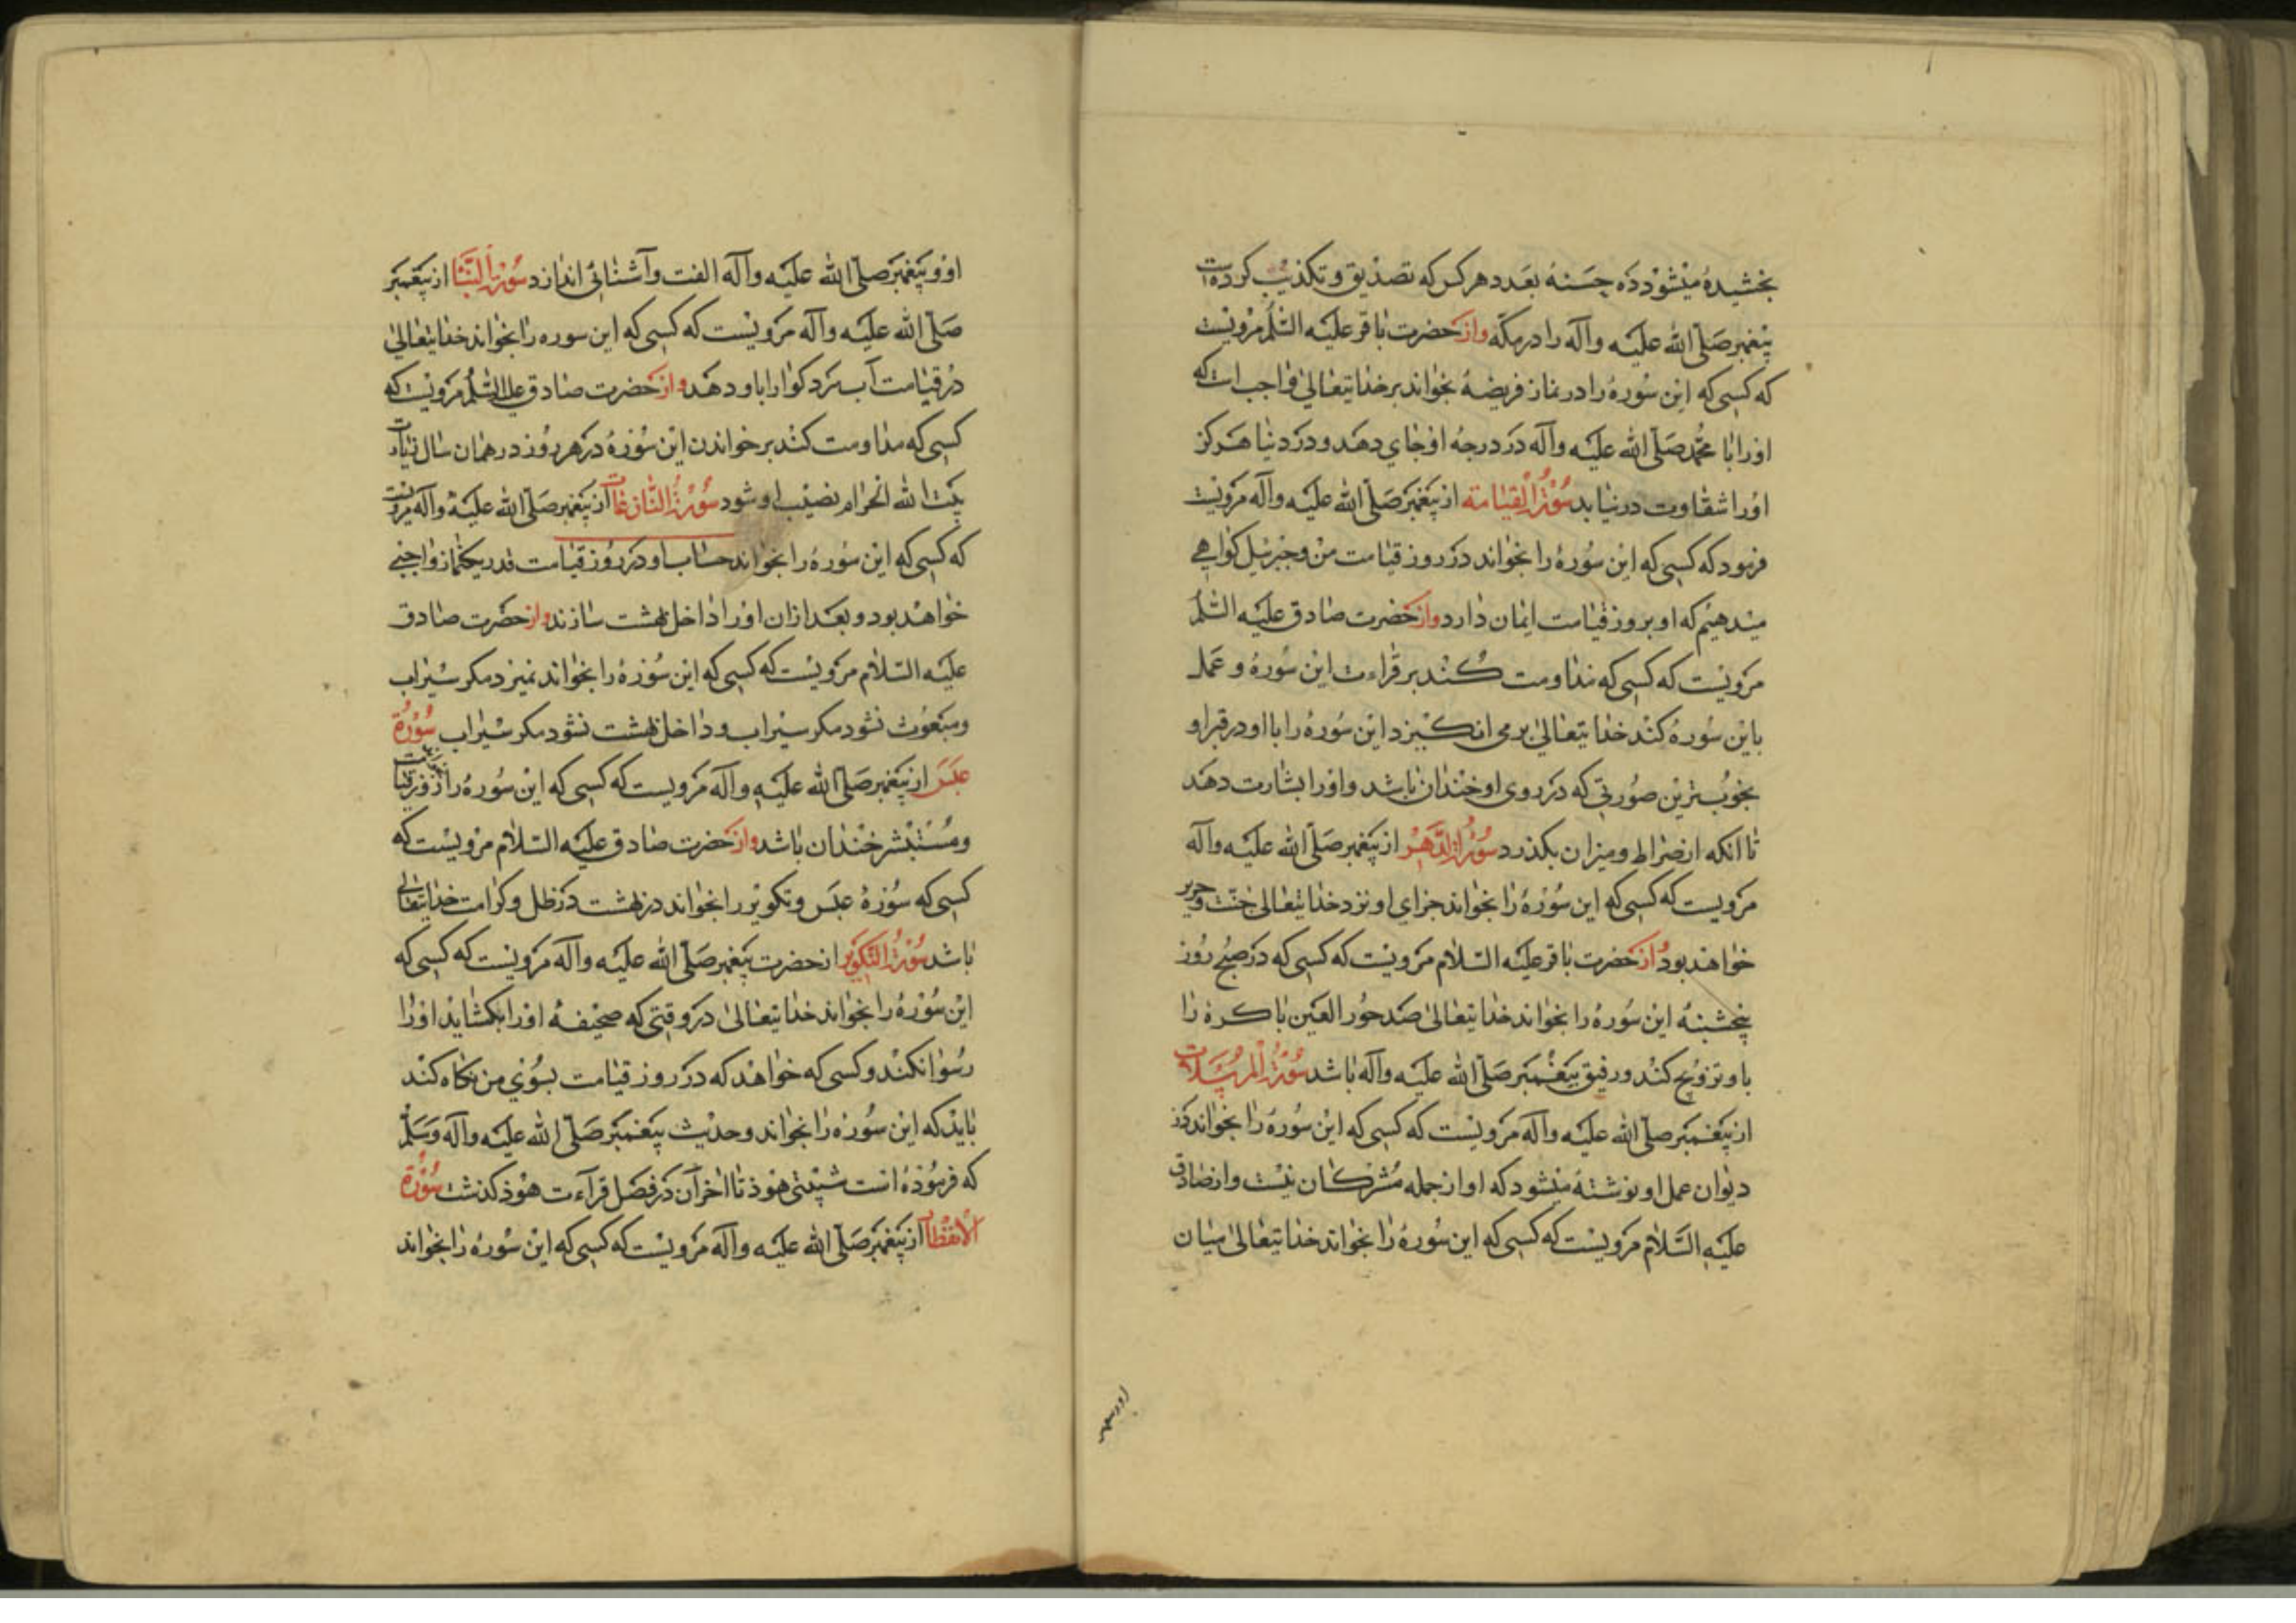 بخشیده میشود ده حسنه بعدد هر کس که تصدیق و تکذیب کرده است
پیغمبر صلّی الله علیه وآله را در مکّه واز حضرت باقر علیه السّلم مرویست
که کسی که این سوره را در نماز فریضه بخواند بر خدایتعالیٰ واجب است که
اورا با محمّد صلّی الله علیه وآله در درجه او جای دهد و در دنیا هرکز
اورا شقاوت درنیابد سورة القیامة از پیغمبر صلّی الله علیه وآله مرویست
فرمود که کسی که این سوره را بخواند در روز قیامت من وجبرئیل کواهی
میدهیم که او بروز قیامت ایمان دارد واز حضرت صادق علیه السّلم
مرویست که کسی که مداومت کند بر قراءت این سوره و عمل
باین سوره کند خدایتعالیٰ بر می انکیزد این سوره را با او در قبر او
بخوبترین صورتی که در روی او خندان باشد و اورا بشارت دهد
تا انکه از صراط و میزان بکذرد سورة الدّهر از پیغمبر صلّی الله علیه وآله
مرویست که کسی که این سوره را بخواند جزای او نزد خدایتعالیٰ جنّت وحریر
خواهد بود واز حضرت باقر علیه السّلام مرویست که کسی که در صبح روز
پنجشنبه این سوره را بخواند خدایتعالیٰ صد حور العین باکره را
باو تزویج کند و رفیق پیغمبر صلّی الله علیه وآله باشد سورة المرسلات
از پیغمبر صلّی الله علیه وآله مرویست که کسی که این سوره را بخواند در
دیوان عمل او نوشته میشود که او از جمله مشرکان نیست واز صادق
علیه السّلام مرویست که کسی که این سوره را بخواند خدایتعالیٰ میان
او و پیغمبر صلّی الله علیه وآله الفت وآشنائی اندازد سورة النّبأ از پیغمبر
صلّی الله علیه وآله مرویست که کسی که این سوره را بخواند خدایتعالیٰ
در قیامت آب سرد کوارا باو دهد واز حضرت صادق علیه السّلم مرویست که
کسی که مداومت کند بر خواندن این سوره در هر روز در همان سال زیارت
بیت الله الحرام نصیب او شود سورة النّازعات از پیغمبر صلّی الله علیه وآله مرویست
که کسی که این سوره را بخواند حساب او در روز قیامت قدر یکنماز واجبی
خواهد بود و بعد ازان اورا داخل بهشت سازند واز حضرت صادق
علیه السّلام مرویست که کسی که این سوره را بخواند نمیرد مکر سیراب
ومبعوث نشود مکر سیراب و داخل بهشت نشود مکر سیراب سورة
عبس از پیغمبر صلّی الله علیه وآله مرویست که کسی که این سوره را
ومستبشر خندان باشد واز حضرت صادق علیه السّلام مرویست که
کسی که سورۀ عبس وتکویر را بخواند در بهشت در ظل وکرامت خدایتعالی
باشد سورة التّکویر از حضرت پیغمبر صلّی الله علیه وآله مرویست که کسی که
این سوره را بخواند خدایتعالیٰ در وقتی که صحیفه اورا بکشاید اورا
رسوا نکند و کسی که خواهد که در روز قیامت بسوی من نکاه کند
باید که این سوره را بخواند وحدیث پیغمبر صلّی الله علیه وآله وسلّم
که فرموده است شیبتنی هود تا اخر آن در فضل قرآءت هود کذشت سورة
الانفطار از پیغمبر صلّی الله علیه وآله مرویست که کسی که این سوره را بخواند